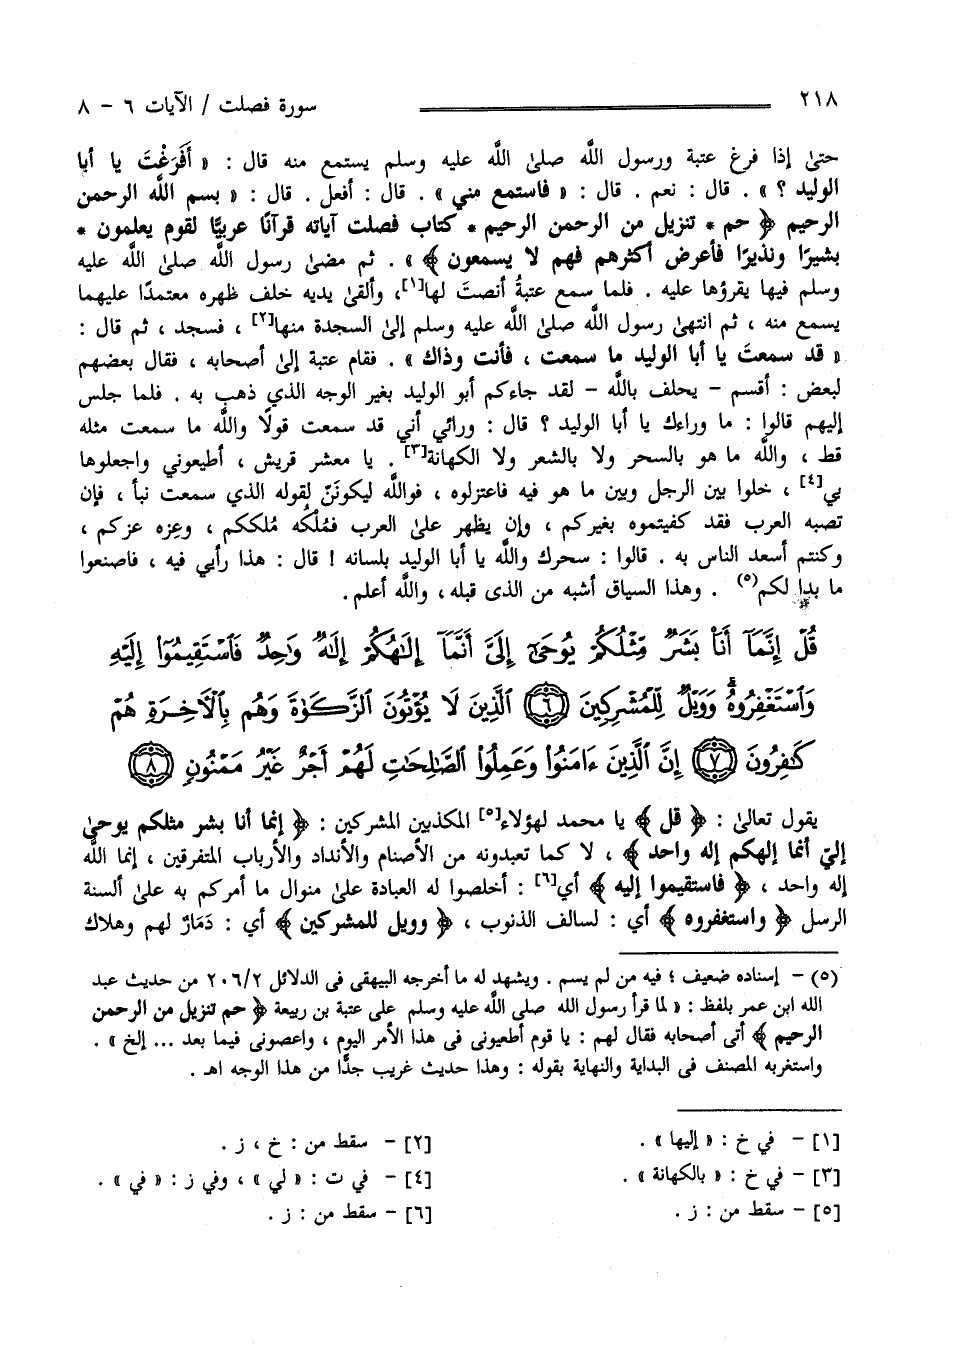 ٢١٨ سورة فصلت / الآيات ٦ - ٨
حتىٰ إذا فرغ عتبة ورسول اللَّه صلىٰ اللَّه عليه وسلم يستمع منه قال : « أَفَرَغْتَ يا أبا
الوليد ؟ » . قال : نعم . قال : « فاستمع مني » . قال : أفعل . قال : « بسم اللَّه الرحمن
الرحيم ﴿ حم * تنزيل من الرحمن الرحيم * كتاب فصلت آياته قرآنًا عربيًّا لقوم يعلمون *
بشيرًا ونذيرًا فأعرض أكثرهم فهم لا يسمعون ﴾ » . ثم مضىٰ رسول اللَّه صلىٰ اللَّه عليه
وسلم فيها يقرؤها عليه . فلما سمع عتبةُ أنصتَ لها[١]، وألقىٰ يديه خلف ظهره معتمدًا عليهما
يسمع منه ، ثم انتهىٰ رسول اللَّه صلىٰ اللَّه عليه وسلم إلىٰ السجدة منها[٢] ، فسجد ، ثم قال :
« قد سمعتَ يا أبا الوليد ما سمعت ، فأنت وذاك » . فقام عتبة إلىٰ أصحابه ، فقال بعضهم
لبعض : أقسم - يحلف باللَّه - لقد جاءكم أبو الوليد بغير الوجه الذي ذهب به . فلما جلس
إليهم قالوا : ما وراءك يا أبا الوليد ؟ قال : ورائي أني قد سمعت قولًا واللَّه ما سمعت مثله
قط ، واللَّه ما هو بالسحر ولا بالشعر ولا الكهانة[٣] . يا معشر قريش ، أطيعوني واجعلوها
بي[٤] ، خلوا بين الرجل وبين ما هو فيه فاعتزلوه ، فواللَّه ليكونَنّ لقوله الذي سمعت نبأ ، فإن
تصبه العرب فقد كفيتموه بغيركم ، وإن يظهر علىٰ العرب فمُلْكُه مُلككم ، وعِزه عزكم ،
وكنتم أسعد الناس به . قالوا : سحرك واللَّه يا أبا الوليد بلسانه ! قال : هذا رأيي فيه ، فاصنعوا
ما بدا لكم(٥) . وهذا السياق أشبه من الذى قبله ، واللَّه أعلم .
قُلْ إِنَّمَآ أَنَا۠ بَشَرٌ مِّثْلُكُمْ يُوحَىٰٓ إِلَىَّ أَنَّمَآ إِلَٰهُكُمْ إِلَٰهٌ وَٰحِدٌ فَٱسْتَقِيمُوٓا۟ إِلَيْهِ
وَٱسْتَغْفِرُوهُ ۗ وَوَيْلٌ لِّلْمُشْرِكِينَ ٦ ٱلَّذِينَ لَا يُؤْتُونَ ٱلزَّكَوٰةَ وَهُم بِٱلْأَخِرَةِ هُمْ
كَٰفِرُونَ ٧ إِنَّ ٱلَّذِينَ ءَامَنُوا۟ وَعَمِلُوا۟ ٱلصَّٰلِحَٰتِ لَهُمْ أَجْرٌ غَيْرُ مَمْنُونٍ ٨
يقول تعالىٰ : ﴿ قل ﴾ يا محمد لهؤلاء[٥] المكذبين المشركين : ﴿ إنما أنا بشر مثلكم يوحىٰ
إليّ أنما إلهكم إله واحد ﴾ ، لا كما تعبدونه من الأصنام والأنداد والأرباب المتفرقين ، إنما اللَّه
إله واحد ، ﴿ فاستقيموا إليه ﴾ أي[٦] : أخلصوا له العبادة علىٰ منوال ما أمركم به علىٰ ألسنة
الرسل ﴿ واستغفروه ﴾ أي : لسالف الذنوب ، ﴿ وويل للمشركين ﴾ أي : دَمَارٌ لهم وهلاك
(٥) - إسناده ضعيف ؛ فيه من لم يسم . ويشهد له ما أخرجه البيهقى فى الدلائل ٢٠٦/٢ من حديث عبد
الله ابن عمر بلفظ : « لما قرأ رسول الله صلى اللَّه عليه وسلم على عتبة بن ربيعة ﴿ حم تنزيل من الرحمن
الرحيم ﴾ أتى أصحابه فقال لهم : يا قوم أطيعونى فى هذا الأمر اليوم ، واعصونى فيما بعد ... إلخ » .
واستغربه المصنف فى البداية والنهاية بقوله : وهذا حديث غريب جدًّا من هذا الوجه اهـ .
[١] - في خ : « إليها » . [٢] - سقط من : خ ، ز .
[٣] - في خ : « بالكهانة » . [٤] - في ت : « لي » ، وفي ز : « في » .
[٥] - سقط من : ز . [٦] - سقط من : ز .